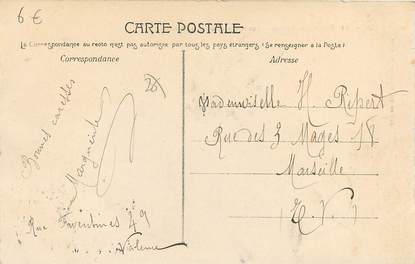 6 €
CARTE POSTALE
La Correspondance au recto n'est pas autorisée par tous les pays étrangers (Se renseigner à la Poste)
Correspondance
Adresse
Bonnes caresses
Marguerite
Rue Faventines 49
Valence
Mademoiselle H. Repert
Rue des 3 Mages 18
Marseille
E. V.